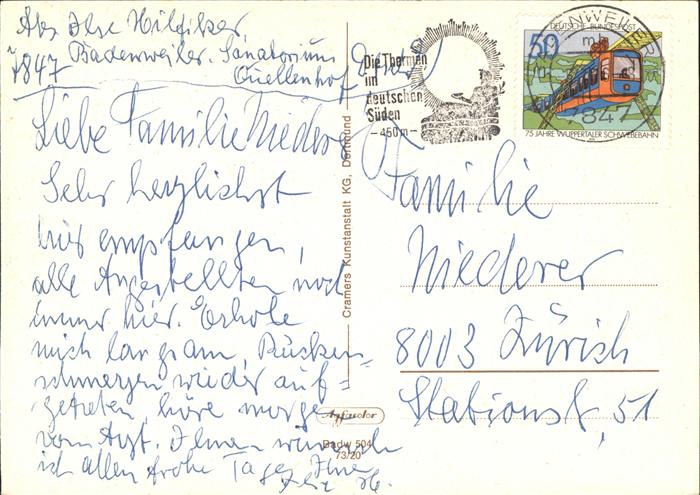 Abs Ilse Hilfiker
7847 Badenweiler. Sanatorium
Quellenhof
Liebe Familie Niederer
Sehr herzlichst
hier empfangen,
alle Angestellten noch
immer hier. Erhole
mich langsam, Rücken=
schmerzen wieder auf=
getreten, höre morgen
vom Arzt. Ihnen wünsche
ich allen frohe Tage, Ihre
Cramers Kunstanstalt KG, Dortmund
Badw 504
73/20
Die Thermen
im
deutschen
Süden
- 450 m -
DEUTSCHE BUNDESPOST
50
75 JAHRE WUPPERTALER SCHWEBEBAHN
Familie
Niederer
8003 Zürich
Stationsst, 51